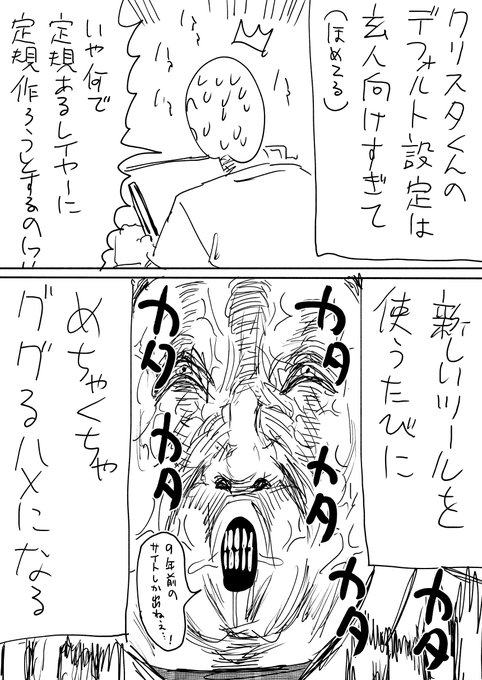 クリスタくんの
デフォルト設定は
玄人向けすぎて
(ほめてる)
いや何で
定規あるレイヤーに
定規作ろうとするのに!!
新しいツールを
使うたびに
カタ
カタ
カタ
カタ
カタ
カタ
めちゃくちゃ
ググるハメになる
9年前の
サイトしか出ねぇ…!